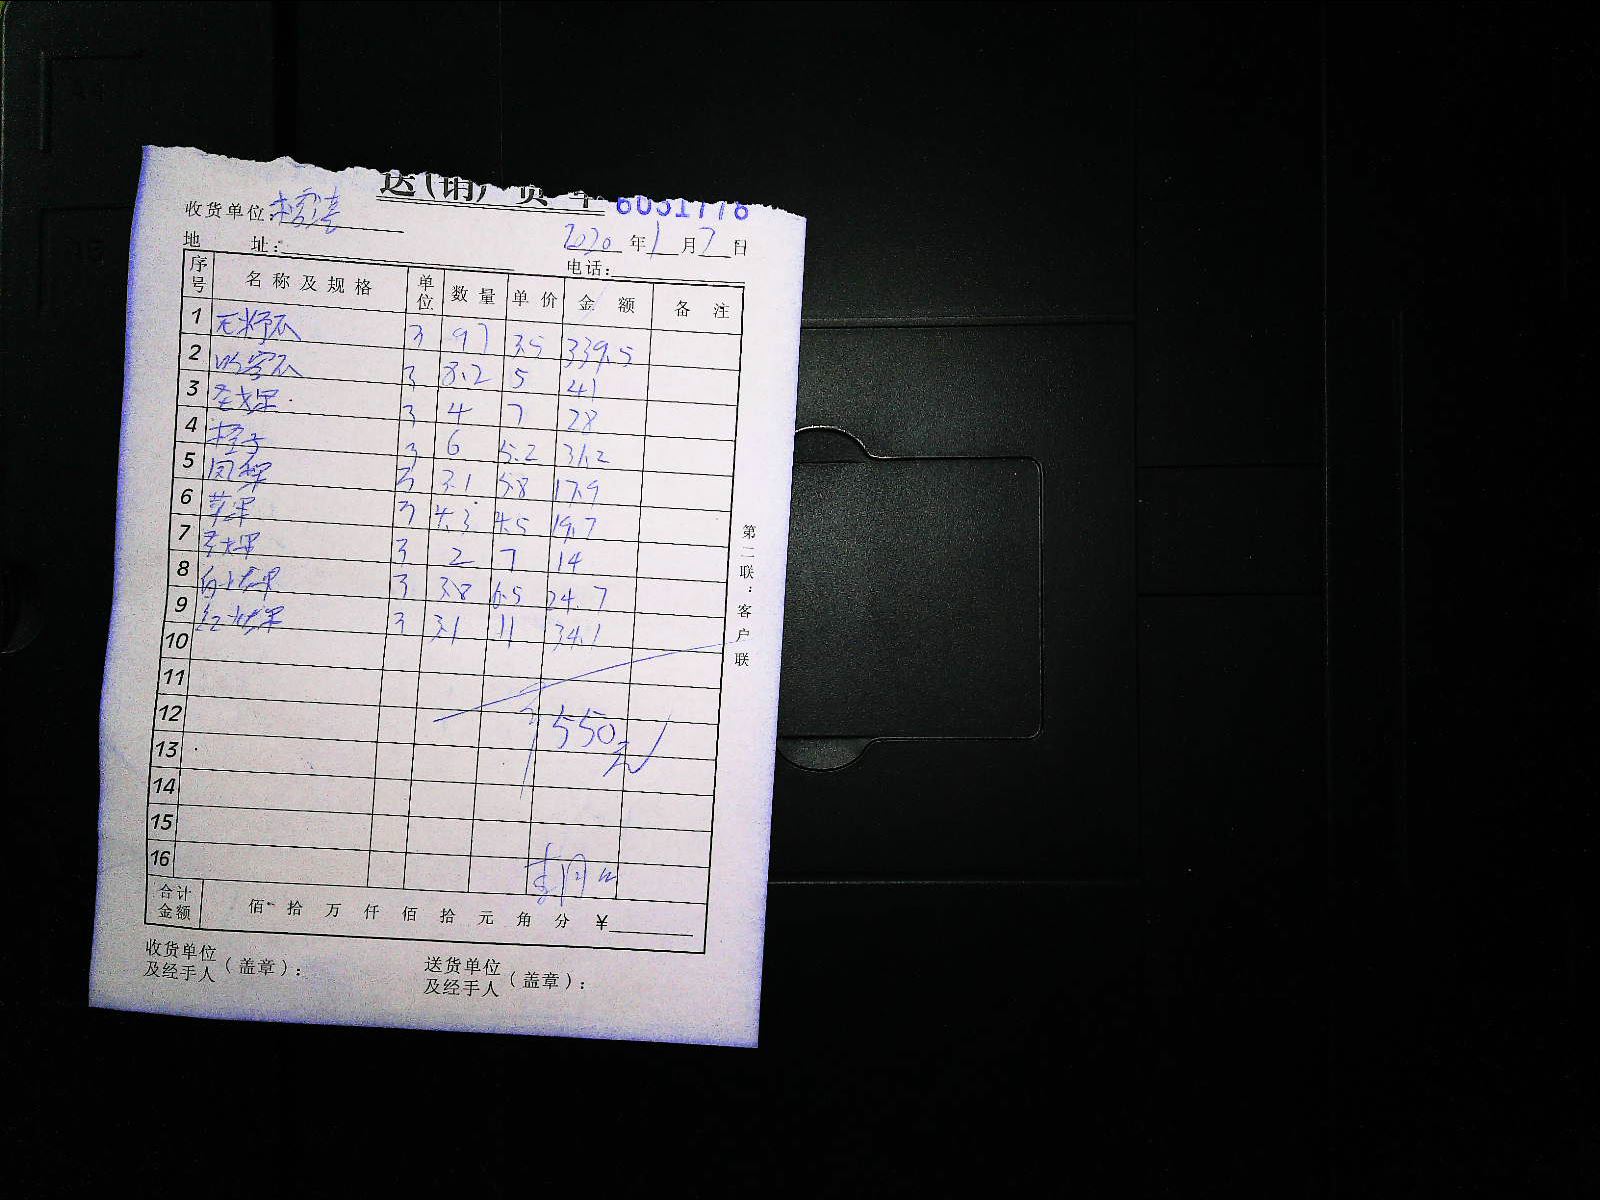 送(销)货单 6031776
收货单位:
2020 年 1 月 7 日
地 址:
电话:
序号 名称及规格 单位 数量 单价 金额 备注
1 3 97 3.5 339.5
2 3 8.2 5 41
3 圣女果 3 4 7 28
4 橙子 3 6 5.2 31.2
5 凤梨 3 3.1 5.8 17.9
6 苹果 3 4.3 4.5 19.7
7 3 2 7 14
8 3 3.8 6.5 24.7
9 3 3.1 11 34.1
10
11
12 550元
13
14
15
16
合计金额 佰 拾 万 仟 佰 拾 元 角 分 ¥
收货单位及经手人(盖章):
送货单位及经手人(盖章):
第二联:客户联